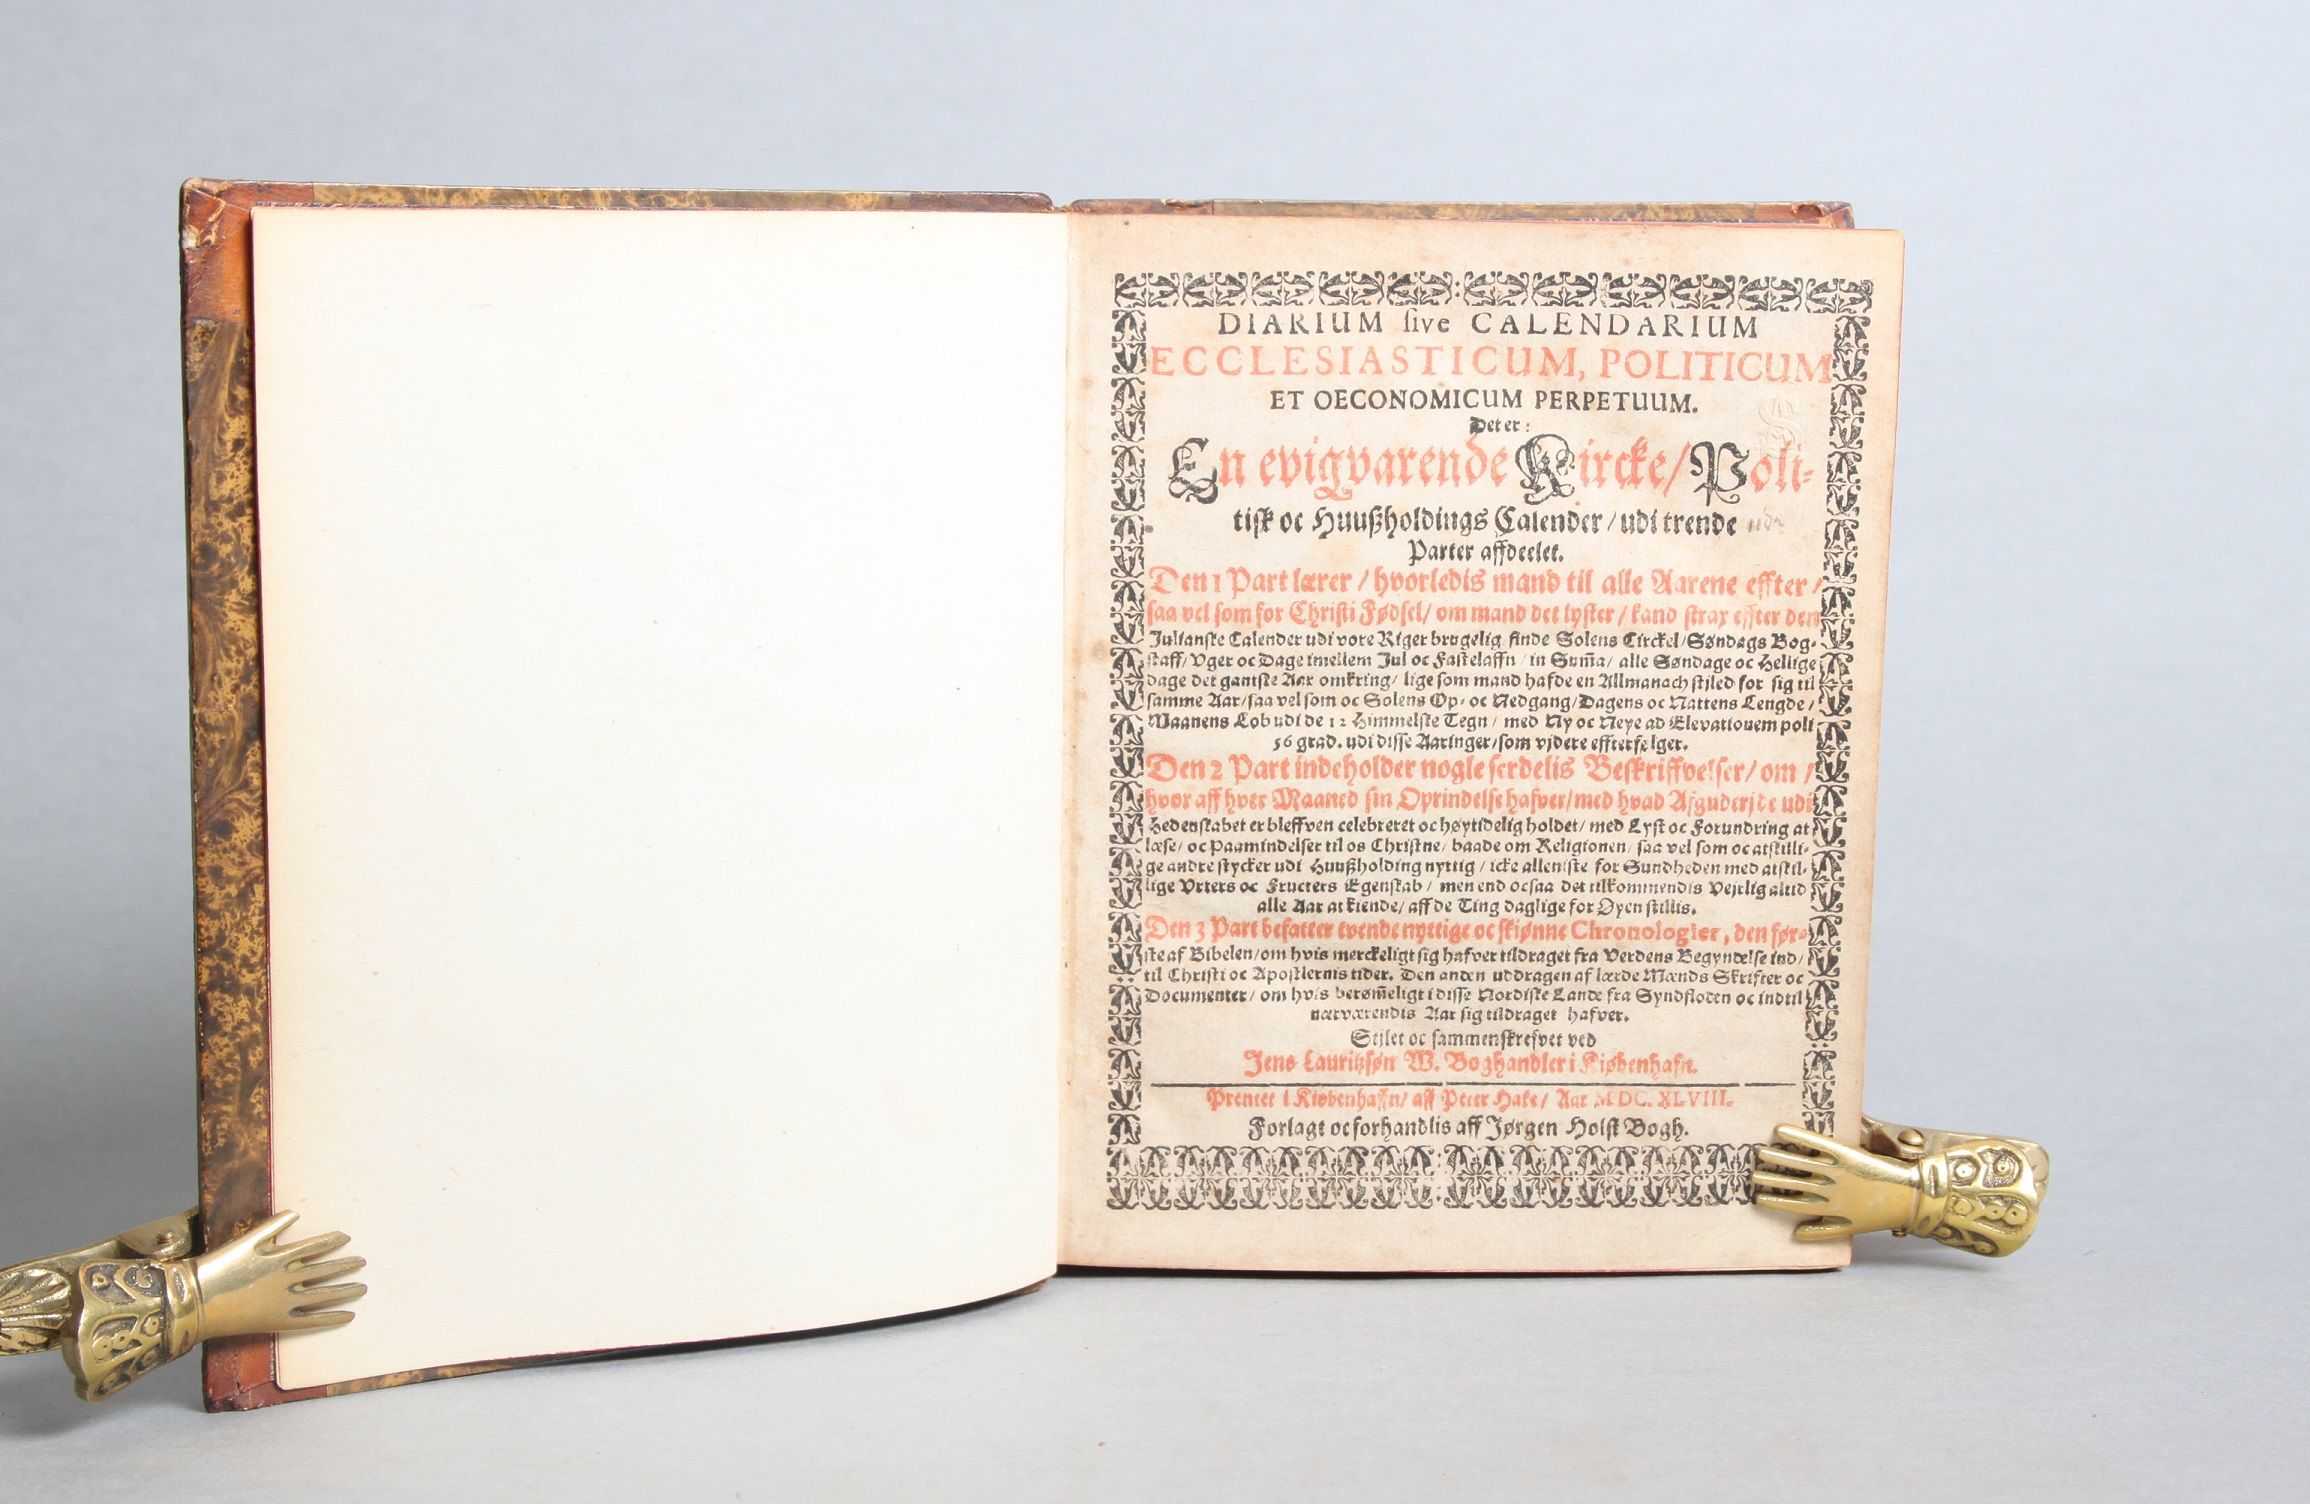 DIARIUM sive CALENDARIUM
ECCLESIASTICUM, POLITICUM
ET OECONOMICUM PERPETUUM.
Det er:
En evigvarende Kircke/ Poli-
tisk oc Huußholdings Calender/ udi trende
Parter affdeelet.
Den 1 Part lærer/ hvorledis mand til alle Aarene effter/
saa vel som for Christi Fødsel/ om mand det lyster/ kand strax effter den
Julianske Calender udi vore Riger brugelig finde Solens Circkel/ Søndags Bog-
staff/ Uger oc Dage imellem Jul oc Fastelaffn/ in Sum̃a/ alle Søndage oc Hellige
dage det gantske Aar omkring/ lige som mand hafde en Allmanach stjled for sig til
samme Aar/ saa vel som oc Solens Op- oc Nedgang/ Dagens oc Nattens Lengde/
Maanens Lob udi de 12 Himmelske Tegn/ med Ny oc Neye ad Elevationem poli
56 grad. udi disse Aaringer/ som vjdere effterfølger.
Den 2 Part indeholder nogle serdelis Beskriffvelser/ om/
hvor aff hver Maaned sin Oprindelse hafver/ med hvad Afguderj de udi
Hedenskabet er bleffven celebreret oc høytidelig holdet/ med Lyst oc Forundring at
læse/ oc Paamindelser til os Christne/ baade om Religionen/ saa vel som oc atskilli-
ge andre stycker udi Huußholding nyttig/ icke alleniste for Sundheden med atskil-
lige Vrters oc Fructers Egenskab/ men end ocsaa det tilkommendis Vejrlig altid
alle Aar at kiende/ aff de Ting daglige for Øyen stillis.
Den 3 Part befatter tvende nyttige oc skiønne Chronologier, den før-
ste af Bibelen/ om hvis merckeligt sig hafver tildraget fra Verdens Begyndelse ind/
til Christi oc Apostlernis tider. Den anden uddragen af lærde Mænds Skrifter oc
Documenter/ om hvis berøm̃eligt i disse Nordiske Lande fra Syndfloden oc indtil
nærværendis Aar sig tildraget hafver.
Stjlet oc sammenskrefvet ved
Jens Lauritzsøn W. Boghandler i Kiøbenhafn.
Prentet i Kiøbenhaffn/ aff Peter Hake/ Aar MDC. XLVIII.
Forlagt oc forhandlis aff Jørgen Holst Bogh.